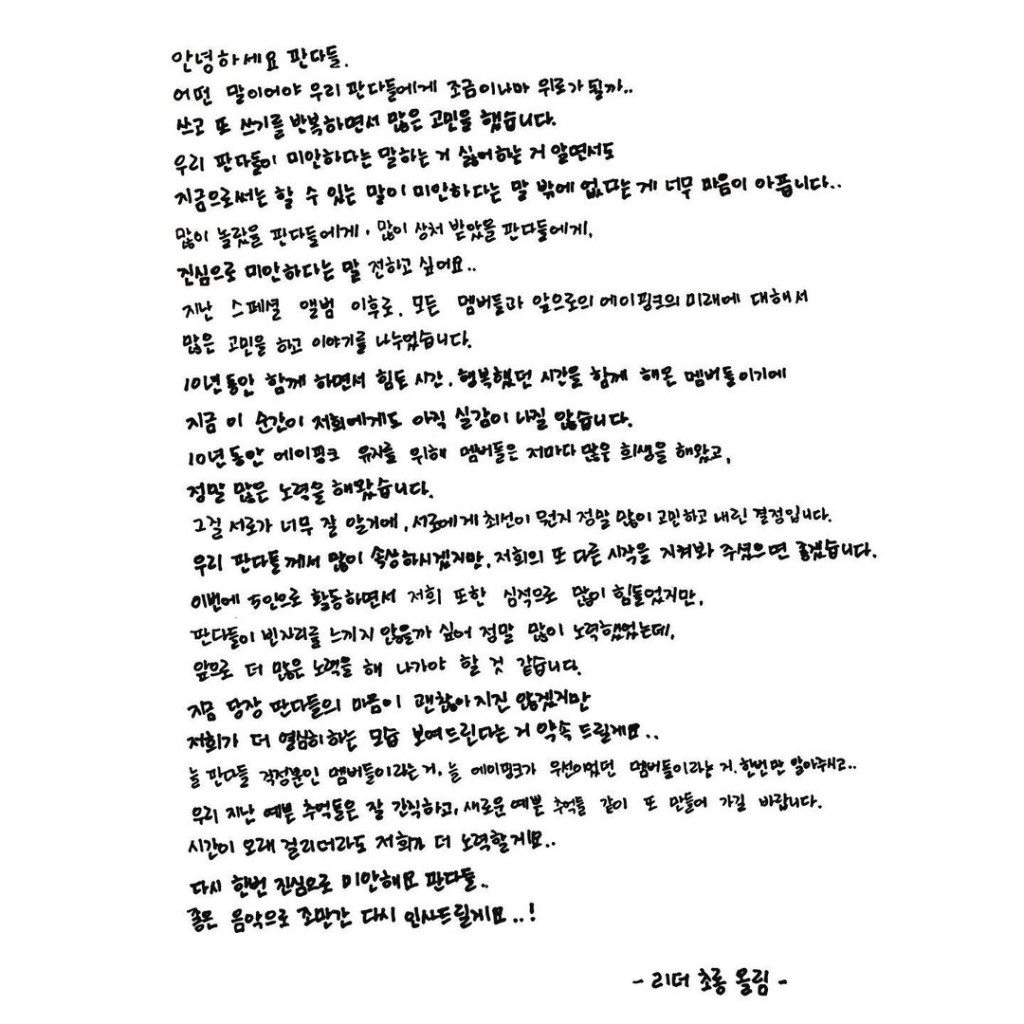 안녕하세요 판다들.
어떤 말이어야 우리 판다들에게 조금이나마 위로가 될까..
쓰고 또 쓰기를 반복하면서 많은 고민을 했습니다.
우리 판다들이 미안하다는 말하는 거 싫어하는 거 알면서도
지금으로써는 할 수 있는 말이 미안하다는 말 밖에 없다는 게 너무 마음이 아픕니다..
많이 놀랐을 판다들에게, 많이 상처 받았을 판다들에게,
진심으로 미안하다는 말 전하고 싶어요..
지난 스페셜 앨범 이후로, 모든 멤버들과 앞으로의 에이핑크의 미래에 대해서
많은 고민을 하고 이야기를 나누었습니다.
10년 동안 함께 하면서 힘든 시간, 행복했던 시간을 함께 해온 멤버들이기에
지금 이 순간이 저희에게도 아직 실감이 나질 않습니다.
10년 동안 에이핑크 유지를 위해 멤버들은 저마다 많은 희생을 해왔고,
정말 많은 노력을 해왔습니다.
그걸 서로가 너무 잘 알기에, 서로에게 최선이 뭔지 정말 많이 고민하고 내린 결정입니다.
우리 판다들께서 많이 속상하시겠지만, 저희의 또 다른 시작을 지켜봐 주셨으면 좋겠습니다.
이번에 5인으로 활동하면서 저희 또한 심적으로 많이 힘들었지만,
판다들이 빈자리를 느끼지 않을까 싶어 정말 많이 노력했었는데,
앞으로 더 많은 노력을 해 나가야 할 것 같습니다.
지금 당장 판다들의 마음이 괜찮아지진 않겠지만
저희가 더 열심히하는 모습 보여드린다는 거 약속 드릴게요..
늘 판다들 걱정뿐인 멤버들이라는 거, 늘 에이핑크가 우선이었던 멤버들이라는 거, 한번만 알아주시고..
우리 지난 예쁜 추억들은 잘 간직하고, 새로운 예쁜 추억들 같이 또 만들어 가길 바랍니다.
시간이 오래 걸리더라도 저희가 더 노력할게요..
다시 한번 진심으로 미안해요 판다들..
좋은 음악으로 조만간 다시 인사드릴게요..!
- 리더 초롱 올림 -